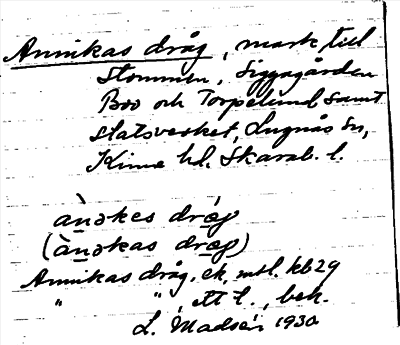 Annikas dråg, mark till
Stommen, Siggagården
Boo och Torpelund samt
statsverket, Lugnås sn,
Kinne hd. Skarab. l.
ànəkes dræg
(ànəkas dræg)
Annikas dråg, ek. mtl. kb 29
" " , st l., bek.
L. Madsén 1930